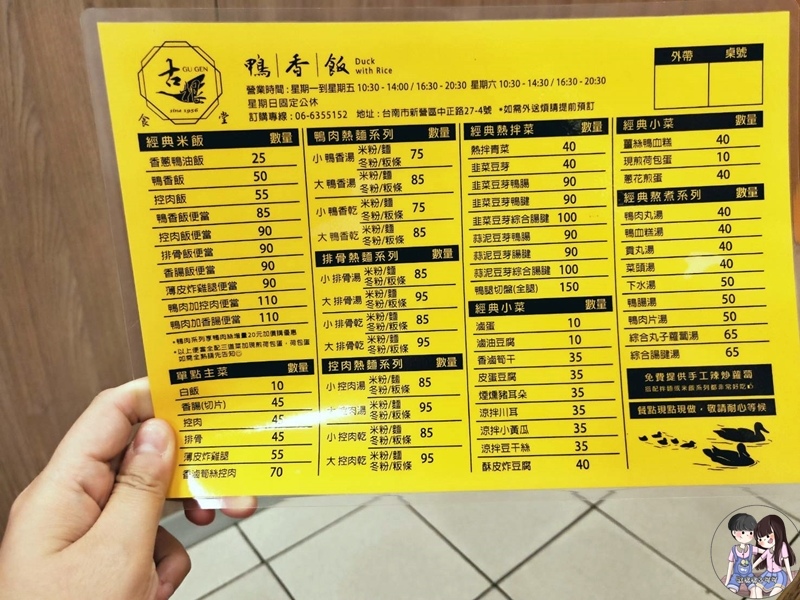 古
GU GEN
since 1956
食堂
鴨|香|飯 Duck with Rice
營業時間：星期一到星期五 10:30 - 14:00 / 16:30 - 20:30 星期六 10:30 - 14:30 / 16:30 - 20:30
星期日固定公休
訂購專線：06-6355152 地址：台南市新營區中正路27-4號 *如需外送煩請提前預訂
外帶 桌號
經典米飯 數量
香蔥鴨油飯 25
鴨香飯 50
控肉飯 55
鴨香飯便當 85
控肉飯便當 90
排骨飯便當 90
香腸飯便當 90
薄皮炸雞腿便當 90
鴨肉加控肉便當 110
鴨肉加香腸便當 110
*鴨肉系列享鴨肉絲增量20元加價購優惠
*以上便當主配三道菜加現煎荷包蛋，荷包蛋
如需全熟請先告知
單點主菜 數量
白飯 10
香腸(切片) 45
控肉 45
排骨 45
薄皮炸雞腿 55
香滷筍絲控肉 70
鴨肉熱麵系列 數量
小鴨香湯 米粉/麵 冬粉/粄條 75
大鴨香湯 米粉/麵 冬粉/粄條 85
小鴨香乾 米粉/麵 冬粉/粄條 75
大鴨香乾 米粉/麵 冬粉/粄條 85
排骨熱麵系列 數量
小排骨湯 米粉/麵 冬粉/粄條 85
大排骨湯 米粉/麵 冬粉/粄條 95
小排骨乾 米粉/麵 冬粉/粄條 85
大排骨乾 米粉/麵 冬粉/粄條 95
控肉熱麵系列 數量
小控肉湯 米粉/麵 冬粉/粄條 85
大控肉湯 米粉/麵 冬粉/粄條 95
小控肉乾 米粉/麵 冬粉/粄條 85
大控肉乾 米粉/麵 冬粉/粄條 95
經典熱拌菜 數量
熱拌青菜 40
韭菜豆芽 40
韭菜豆芽鴨腸 90
韭菜豆芽腸腱 90
韭菜豆芽綜合腸腱 100
蒜泥豆芽鴨腸 90
蒜泥豆芽腸腱 90
蒜泥豆芽綜合腸腱 100
鴨腿切盤(全腿) 150
經典小菜 數量
滷蛋 10
滷油豆腐 10
香滷筍干 35
皮蛋豆腐 35
煙燻豬耳朵 35
涼拌川耳 35
涼拌小黃瓜 35
涼拌豆干絲 35
酥皮炸豆腐 40
經典小菜 數量
薑絲鴨血糕 40
現煎荷包蛋 10
蔥花煎蛋 40
經典熬煮系列 數量
鴨肉丸湯 40
鴨血糕湯 40
貢丸湯 40
菜頭湯 40
下水湯 50
鴨腸湯 50
鴨肉片湯 50
綜合丸子蘿蔔湯 65
綜合腸腱湯 65
免費提供手工辣炒蘿蔔
搭配拌麵或米飯系列都非常好吃
餐點現點現做，敬請耐心等候